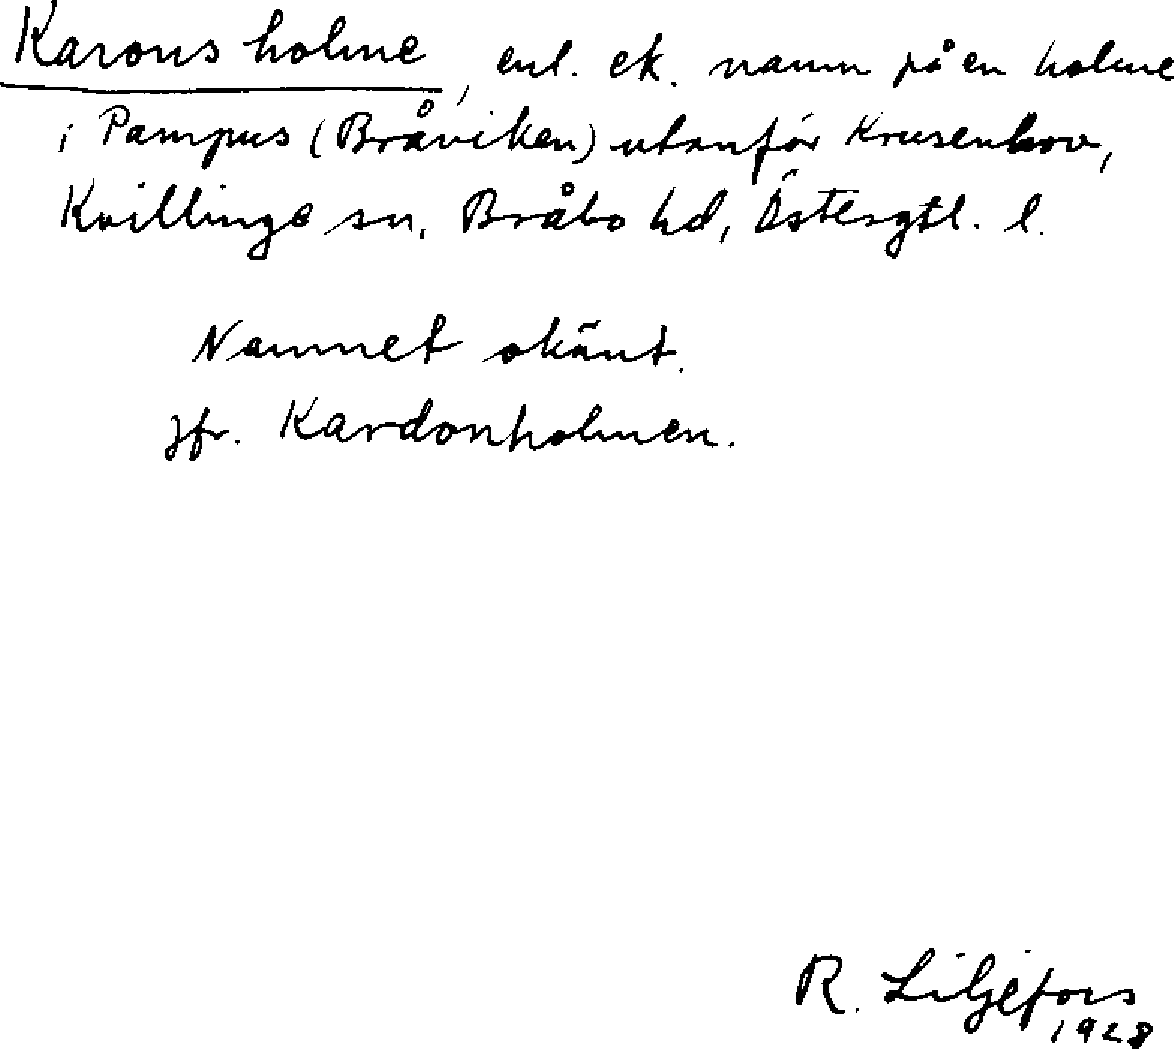 Karons holme, enl. ek. namn på en holme
i Pampus (Bråviken) utanför Krusenhov,
Kvillinge sn, Bråbo hd, Östergtl. l.
Namnet okänt.
Jfr. Kardonholmen.
R. Liljefors
1928